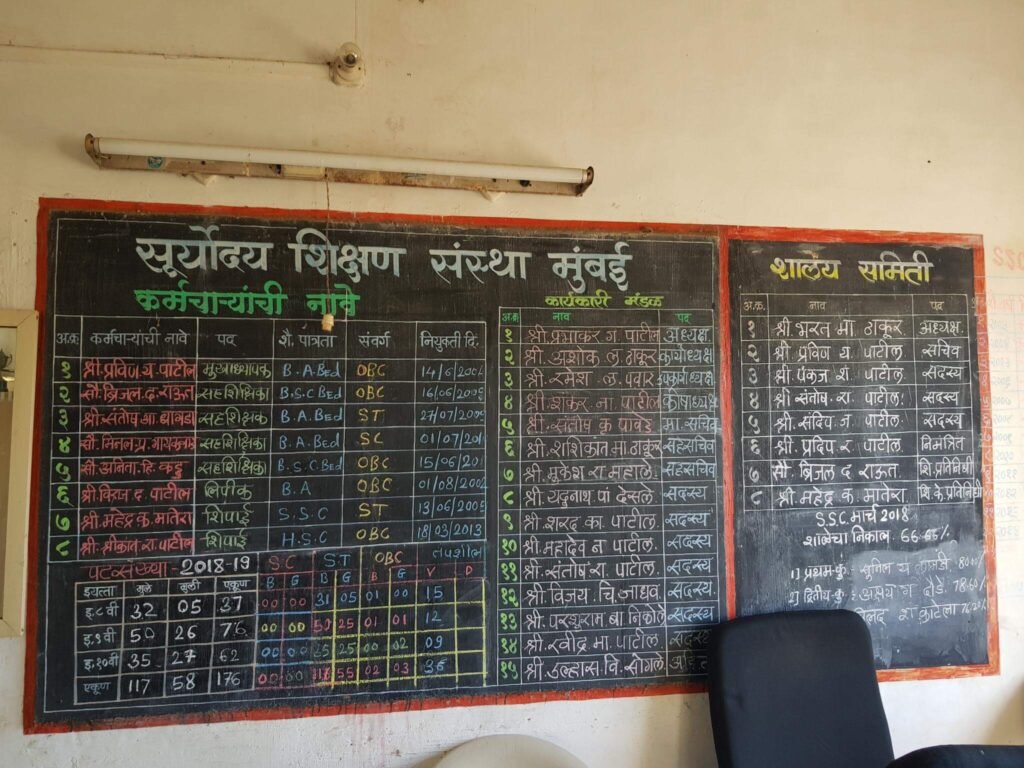 सूर्योदय शिक्षण संस्था मुंबई
कर्मचाऱ्यांची नावे
अ.क्र कर्मचाऱ्यांची नावे पद शै. पात्रता संवर्ग नियुक्ती दि.
१ श्री.प्रविण.य.पाटील मुख्याध्यापक B.A.Bed OBC
२ सौ.ब्रिजल.द.राऊत सहशिक्षिका B.S.C.Bed OBC
३ श्री.संतोष.आ. सहशिक्षक B.A.Bed ST
४ सौ. सहशिक्षिका B.A.Bed SC
५ सौ.अनिता.हि.कडू सहशिक्षिका B.S.C.Bed OBC
६ श्री.विराज.द.पाटील लिपीक B.A OBC
७ श्री.महेंद्र.क.मातेरा शिपाई S.S.C ST 13/06/2005
८ श्री.श्रीकांत.रा.पाटील शिपाई H.S.C OBC 18/03/2013
पटसंख्या - 2018-19 S.C S.T OBC तपशील
इयत्ता मुले मुली एकूण B G B G B G V D
इ.८वी 32 05 37 00 00 31 05 01 00 15
इ.९वी 50 26 76 00 00 50 25 01 01 12
इ.१०वी 35 27 62 00 00 25 00 02 09
एकूण 117 58 176 00 00 55 02 03 36
कार्यकारी मंडळ
अ.क्र. नाव पद
१ श्री.प्रभाकर ग. पाटील अध्यक्ष
२ श्री. अशोक ल. ठाकूर कार्याध्यक्ष
३ श्री. रमेश. ल. पवार उपकार्याध्यक्ष
४ श्री.शंकर. ना. पाटील कोषाध्यक्ष
५ श्री.संतोष. क. मा.सचिव
६ श्री.शशिकांत.मा.ठाकूर सहसचिव
७ श्री.मुकेश.रा.महाले. सहसचिव
८ श्री.यदुनाथ.पां.देसले. सदस्य
९ श्री.शरद.का.पाटील. सदस्य
१० श्री.महादेव.न.पाटील. सदस्य
११ श्री.संतोष.रा.पाटील. सदस्य
१२ श्री.विजय.चि.जाधव. सदस्य
१३ श्री.परशुराम.बा.निकोले सदस्य
१४ श्री.रवींद्र.मा.पाटील. सदस्य
१५ श्री.उल्हास.वि.सोगले.
शालेय समिती
अ.क्र. नाव पद
१ श्री.भरत.मा.ठाकूर अध्यक्ष.
२ श्री.प्रविण य. पाटील. सचिव
३ श्री.पंकज श. पाटील. सदस्य
४ श्री.संतोष.रा.पाटील. सदस्य
५ श्री.संदिप.ज.पाटील. सदस्य
६ श्री.प्रदिप.र.पाटील. निमंत्रित
७ सौ.ब्रिजल.द.राऊत शि.प्रतिनिधी
८ श्री.महेंद्र.क.मातेरा. शि.के.प्रतिनिधी
S.S.C.मार्च 2018
शाळेचा निकाल 66.66%
1) प्रथम-क्रः- सुनिल
2) द्वितीय-क्रः